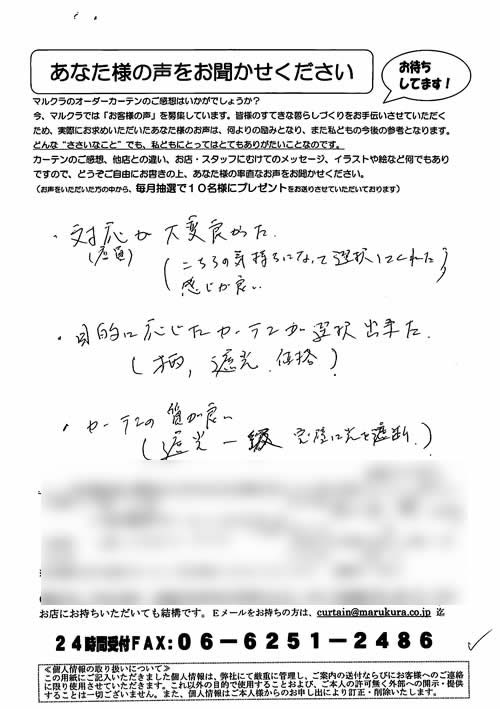 あなた様の声をお聞かせください
お待ち
してます！
マルクラのオーダーカーテンのご感想はいかがでしょうか？
今、マルクラでは「お客様の声」を募集しています。皆様のすてきな暮らしづくりをお手伝いさせていただく
ため、実際にお求めいただいたあなた様のお声は、何よりの励みとなり、また私どもの今後の参考となります。
どんな“ささいなこと”でも、私どもにとってはとてもありがたいことなのです。
カーテンのご感想、他店との違い、お店・スタッフにむけてのメッセージ、イラストや絵など何でもあり
ですので、どうぞご自由にお書きの上、あなた様の率直なお声をお聞かせください。
（お声をいただいた方の中から、毎月抽選で１０名様にプレゼントをお送りさせていただいております）
・対応が大変良かった
(こちらの気持ちになって選択してくれた)
感じが良い
・目的に応じたカーテンが選択出来た.
(柄, 遮光 価格)
・カーテンの質が良い
(遮光一級 完璧に光を遮断.)
お店にお持ちいただいても結構です。Ｅメールをお持ちの方は、curtain@marukura.co.jp 迄
２４時間受付ＦＡＸ：０６－６２５１－２４８６
≪個人情報の取り扱いについて≫
この用紙にご記入いただきました個人情報は、弊社にて厳重に管理し、ご案内の送付ならびにお客様へのご連絡
に限り使用させていただきます。これ以外の目的で使用することおよび、ご本人の許可無く外部への開示・提供
することは一切ございません。また、個人情報はご本人様からのお申し出により訂正・削除いたします。